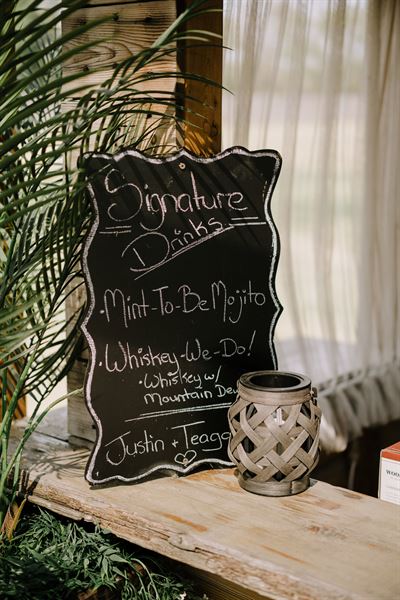 Signature
Drinks
·Mint-To-Be Mojito
·Whiskey-We-Do!
·Whiskey w/
Mountain Dew
Justin + Teag